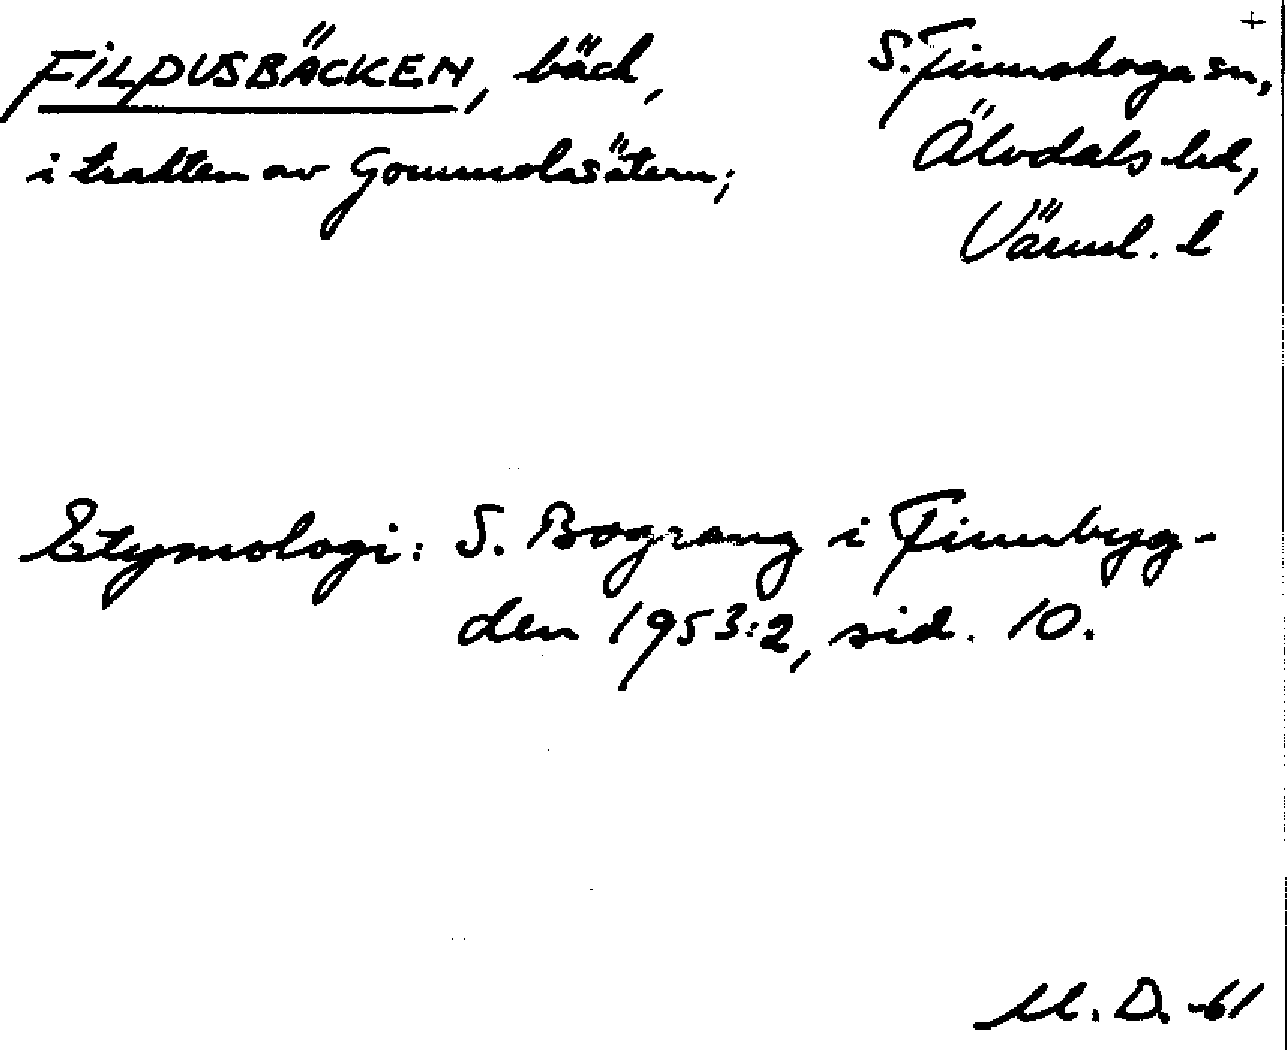 FILPUSBÄCKEN, bäck,
i trakten av Gommolasätern;
S. Finnskoga sn, +
Älvdals hd,
Värml. l
Etymologi: S. Bograng i Finnbyg-
den 1953:2, sid. 10.
M. D. -61